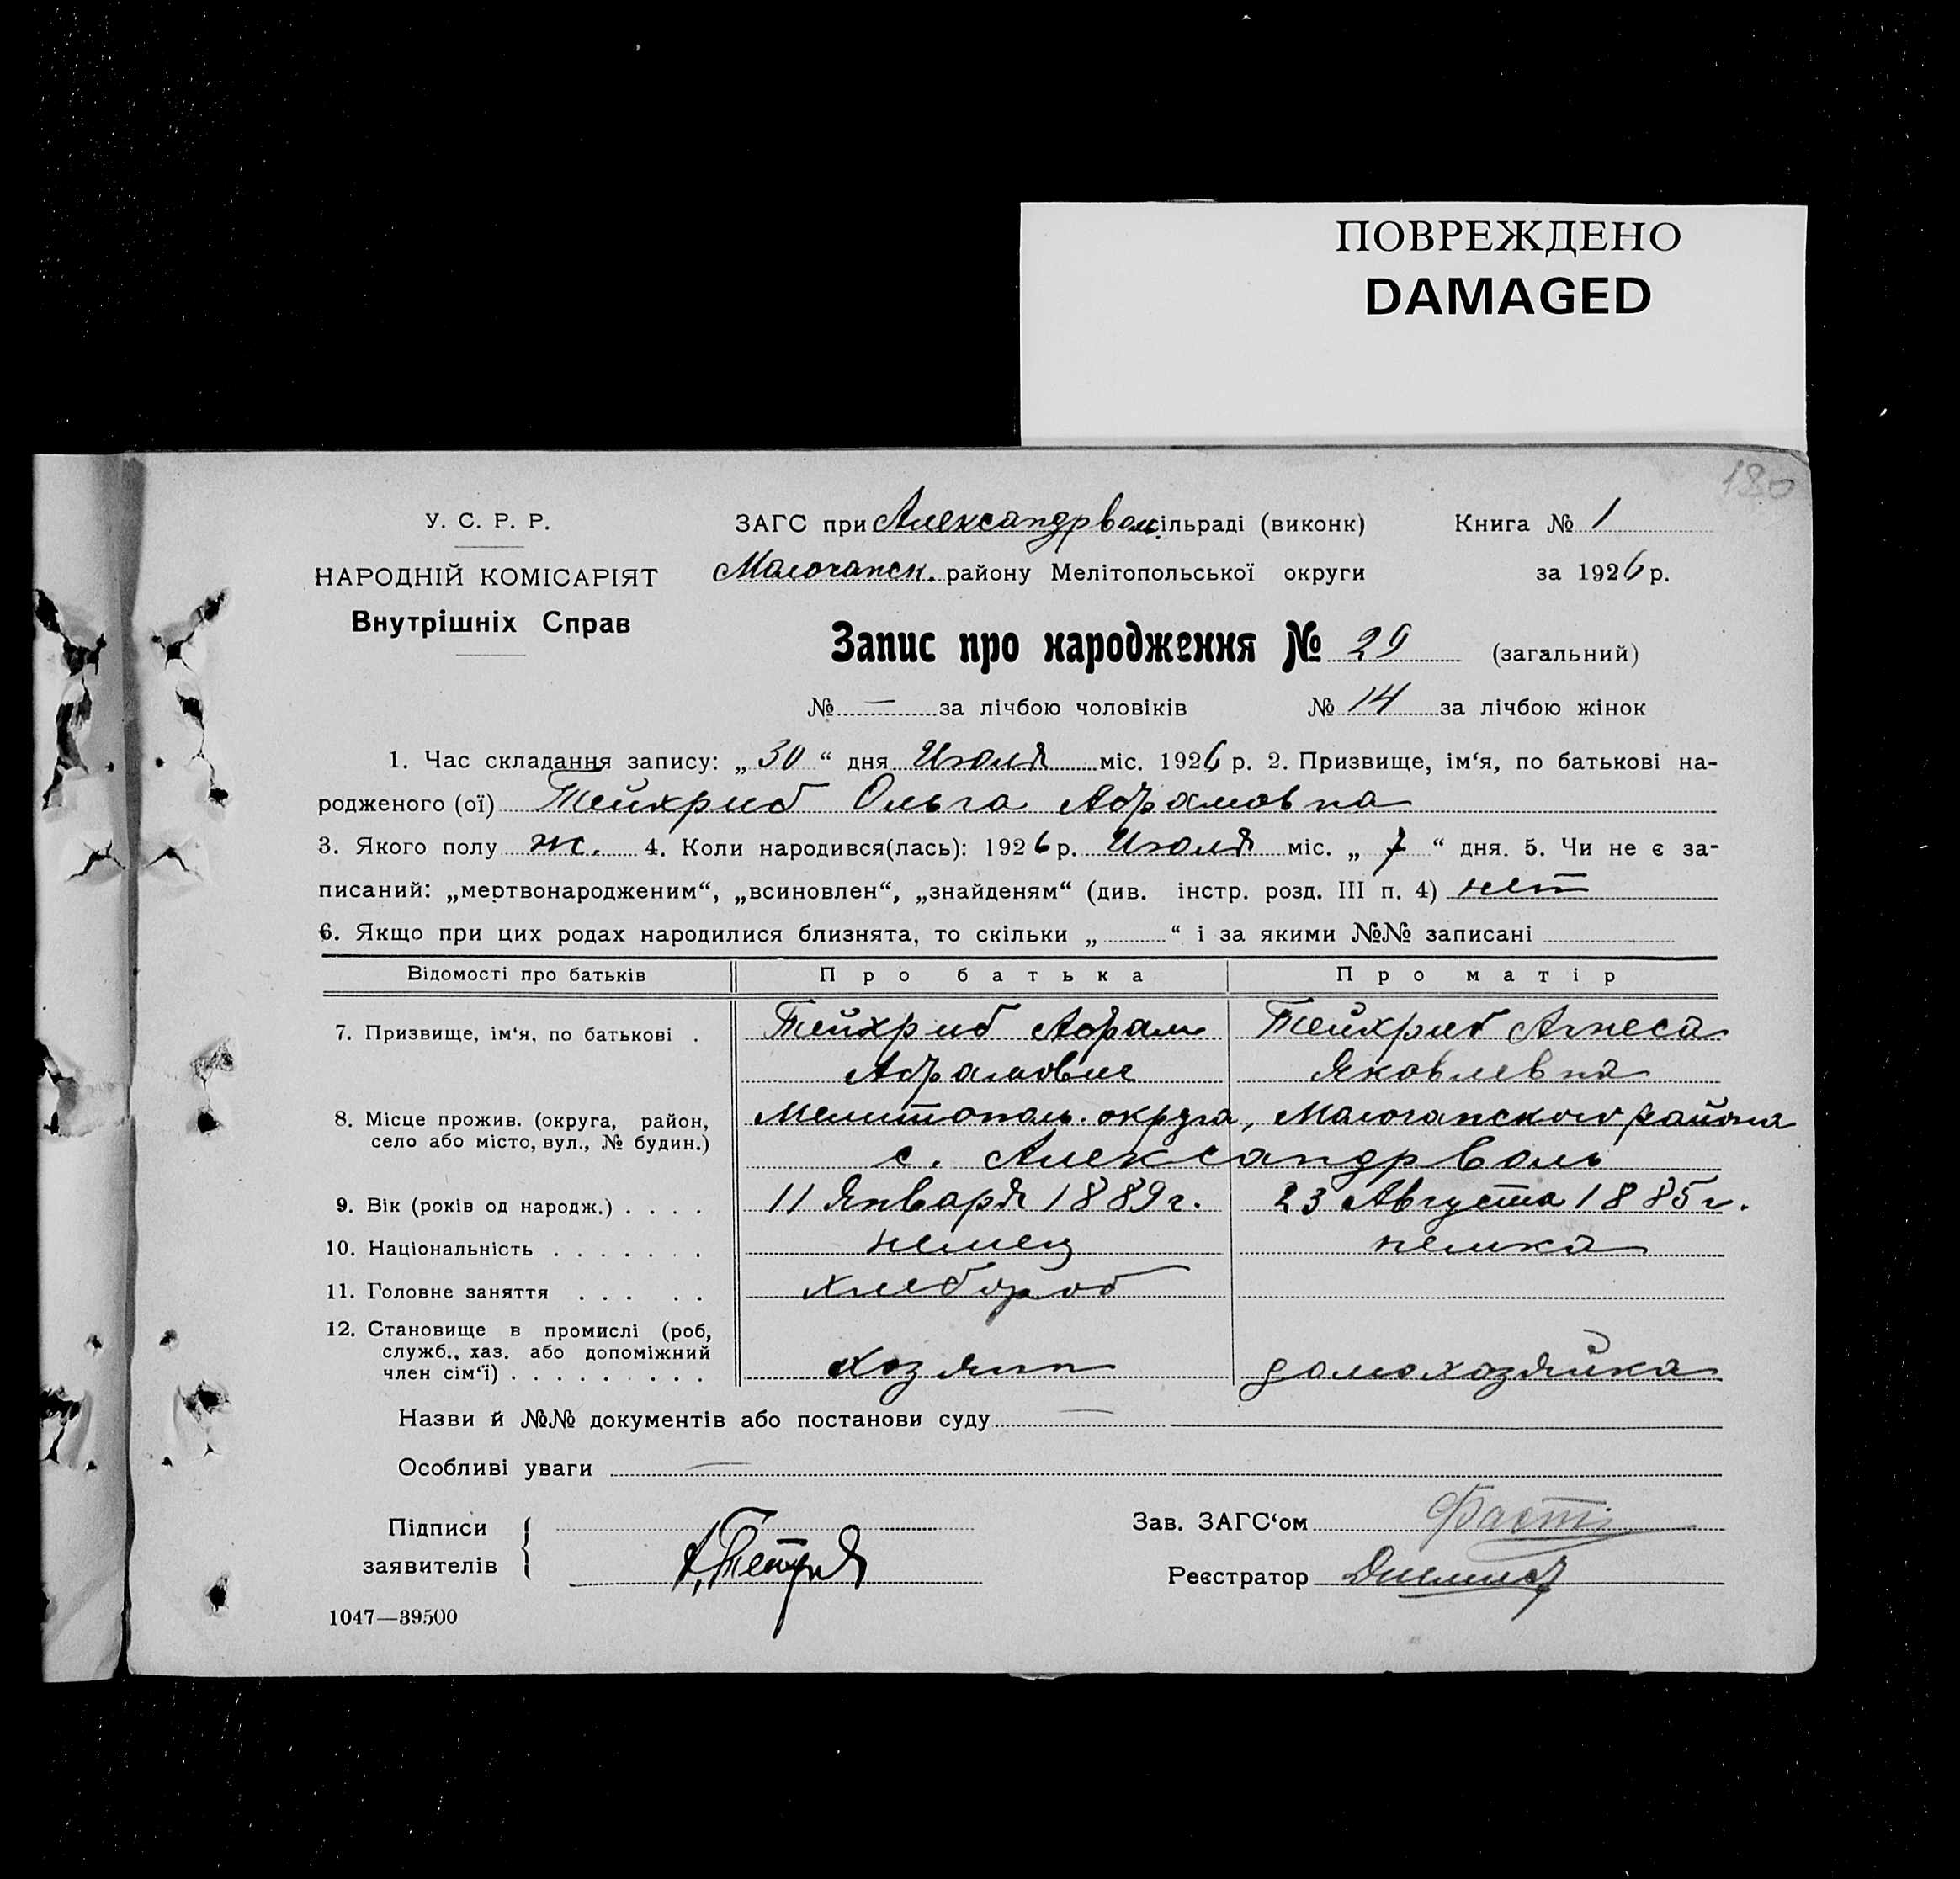 ПОВРЕЖДЕНО
DAMAGED
180
У. С. Р. Р. ЗАГС при Александрволь. сільраді (виконк) Книга № 1
НАРОДНІЙ КОМІСАРІЯТ Молочанск. району Мелітопольської округи за 1926 р.
Внутрішніх Справ
Запис про народження № 29 (загальний)
№ — за лічбою чоловіків № 14 за лічбою жінок
1. Час складання запису: „30“ дня Июля міс. 1926 р. 2. Призвище, ім‘я, по батькові на-
родженого (ої) Тейхриб Ольга Абрамовна
3. Якого полу ж. 4. Коли народився(лась): 1926 р. Июля міс. „7“ дня. 5. Чи не є за-
писаний: „мертвонародженим“, „всиновлен“, „знайденям“ (див. інстр. розд. III п. 4) нет
6. Якщо при цих родах народилися близнята, то скільки „ “ і за якими №№ записані
Відомості про батьків Про батька Про матір
7. Призвище, ім‘я, по батькові . Тейхриб Абрам Тейхриб Агнеса
Абрамович Яковлевна
8. Місце прожив. (округа, район, Мелитополь. округа, Молочанского района
село або місто, вул., № будин.) с. Александрволь
9. Вік (років од народж.) . . . . 11 Января 1889 г. 23 Августа 1885 г.
10. Національність . . . . . . . немец немка
11. Головне заняття . . . . . хлебороб
12. Становище в промислі (роб,
служб., хаз. або допоміжний
член сім‘ї) . . . . . . . . . хозяин домохозяйка
Назви й №№ документів або постанови суду —
Особливі уваги —
Підписи Зав. ЗАГС‘ом Фаст
заявителів
Реєстратор
1047—39500